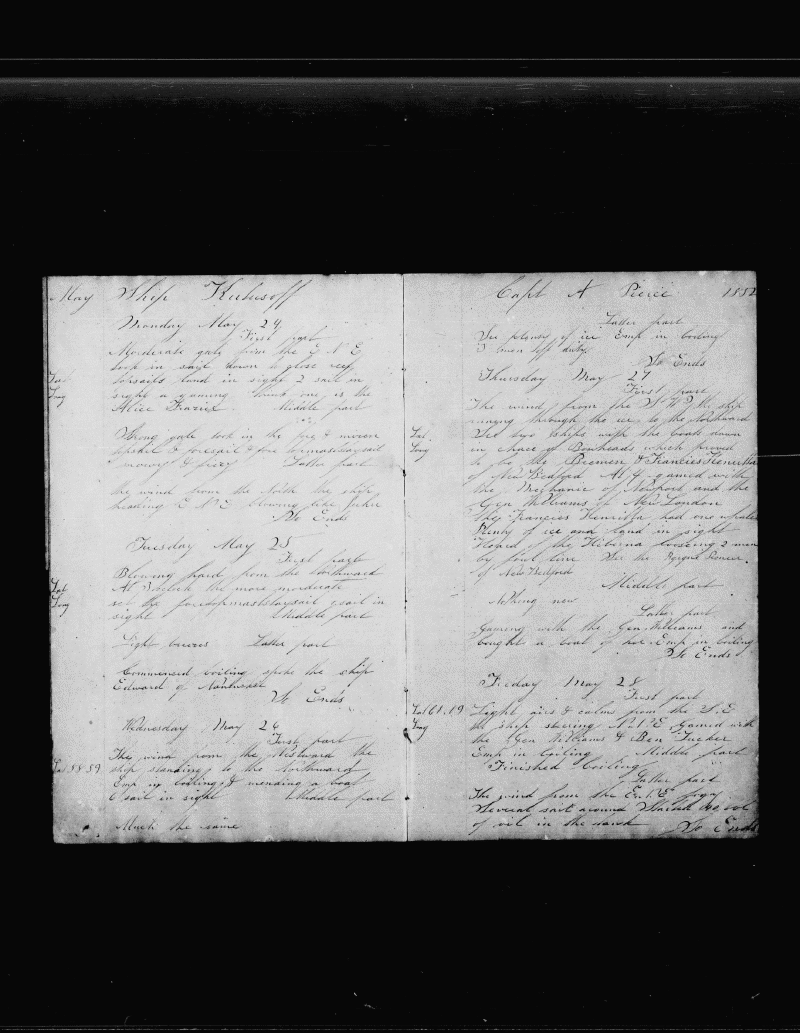 May Ship Kutusoff
Monday May 24
First part
Moderate gale from the E N E
took in sail down to close reef
topsails land in sight 2 sail in
sight a gaming think one is the
Alice Frazier Middle part
Strong gale took in the fore & mizen
topsail & foresail & fore topmaststaysail
snowy & Latter part
the wind from the North the ship
heading E N E blowing like
So Ends
Tuesday May 25
First part
Blowing hard from the Northward
At 3 oclock the more morderate
set the foretopmaststaysail 2 sail in
sight Middle part
Light breeses Latter part
Commenced boiling spoke the ship
Edward of Nantucket
So Ends
Wednesday May 26
First part
The wind from the Westward the
Lat 58 59 ship standing to the Northward
Emp in boiling & mending a boat
sail in sight Middle part
Much the same
Capt A Pierce 1852
Latter part
See plenty of ice Emp in boiling
2 men off duty
So Ends
Thursday May 27
First part
The wind from the S W the ship
runing through the ice to the Northward
See two ships with the boats down
in chace of Bowheads which proved
to be the Bremen & Francies Henrietta
of New Bedford At 4 gamed with
the Mechanic of Newport and the
Gen Williams of New London
the Francies Henrietta had one whale
Plenty of ice and land in sight
Heard of the Hiberna loosing 2 men
by foul line See the Pioneer
of New Bedford
Middle part
Nothing new
Latter part
Gaming with the Gen Williams and
bought a boat of her Emp in boiling
So Ends
Friday May 28
First part
Lat 61.19 Light airs & calms from the S.E
Long the ship steering N.N.E Gamed with
the Gen Williams & Ben Tucker
Emp in boiling Middle part
Finished boiling
Latter part
The wind from the E.N.E foggy
Several sail around Stowed
of oil in the
So Ends